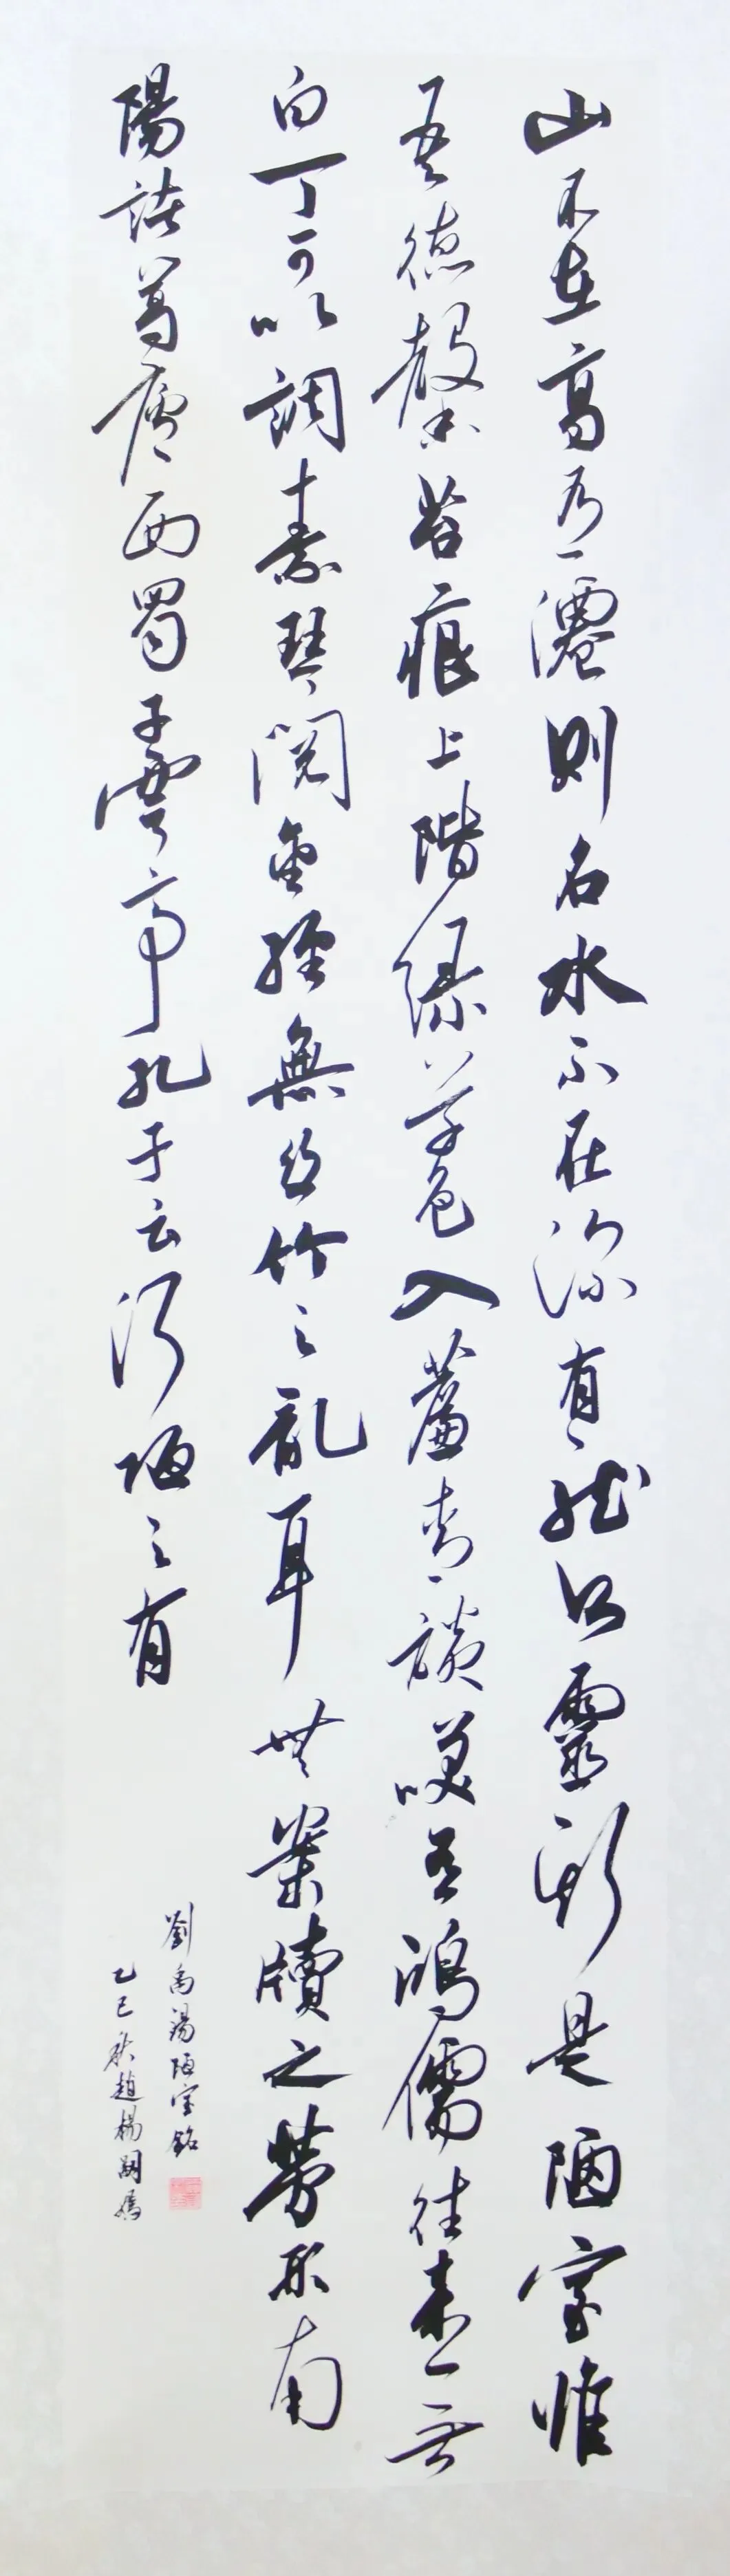 山不在高有僊則名水不在深有龍則靈斯是陋室惟
吾德馨苔痕上階綠草色入簾青談笑有鴻儒往來無
白丁可以調素琴閱金經無絲竹之亂耳無案牘之勞形南
陽諸葛廬西蜀子雲亭孔子云何陋之有
劉禹錫陋室銘
乙巳秋趙楊